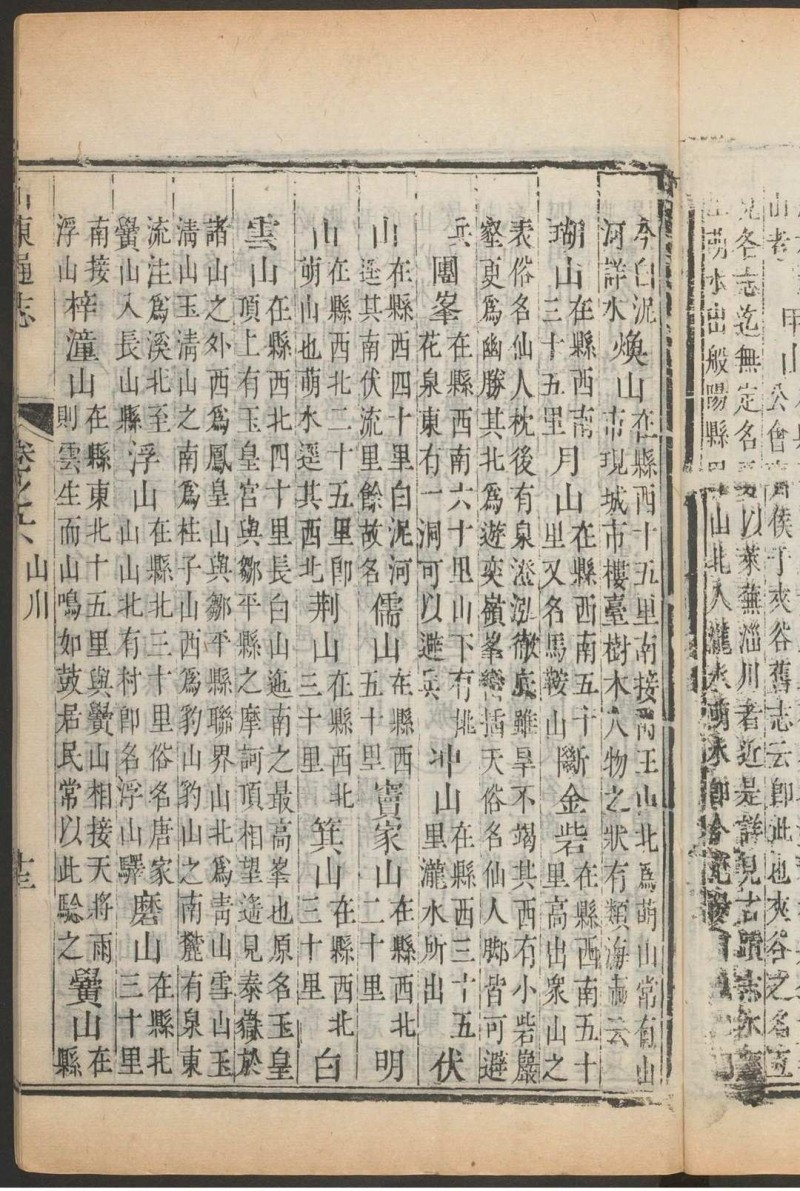 甲山
公會齊侯于夾谷舊志云卽此也夾谷之名互
見各志迄無定名要以萊蕪淄川者近是詳見古蹟志
水出般陽縣
山北入瀧水萌水卽今
今白泥
河詳水
煥山
在縣西十五里南接禹王山北爲萌山常有山
市現城市樓臺樹木人物之狀有類海市云
瑚山
在縣西南
三十五里
月山
在縣西南五十
里又名馬鞍山
斷金砦
在縣西南五十
里高出衆山之
表俗名仙人枕後有泉澄泓徹底雖旱不竭其西有小砦巖
壑更爲幽勝其北爲遊奕嶺峯巒插天俗名仙人脚皆可避
兵
團峯
在縣西南六十里山下有桃
花泉東有一洞可以避兵
冲山
在縣西三十五
里瀧水所出
伏
山
在縣西四十里白泥河
逕其南伏流里餘故名
儒山
在縣西
五十里
竇家山
在縣西北
二十里
明
山
在縣西北二十五里卽
萌山也萌水逕其西北
荆山
在縣西北
三十里
箕山
在縣西北
三十里
白
雲山
在縣西北四十里長白山迤南之最高峯也原名玉皇
頂上有玉皇宮與鄒平縣之摩訶頂相望遥見泰嶽於
諸山之外西爲鳳皇山與鄒平縣聯界山北爲靑山雪山玉
淸山玉淸山之南爲柱子山西爲豹山豹山之南麓有泉東
流注爲溪北至
黌山入長山縣
浮山
在縣北三十里俗名唐家
山山北有村卽名浮山驛
磨山
在縣北
三十里
南接
浮山
梓潼山
在縣東北十五里與黌山相接天將雨
則雲生而山鳴如鼓居民常以此驗之
黌山
在
縣
山東通志
卷之六
山川